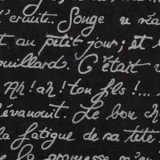 l'éruit. Songe
et au petit jour; et
ouillard. C'était
Ah! ah! ton fils!...
évanouit. Le bon ch
la fatigue de sa tête
la promesse